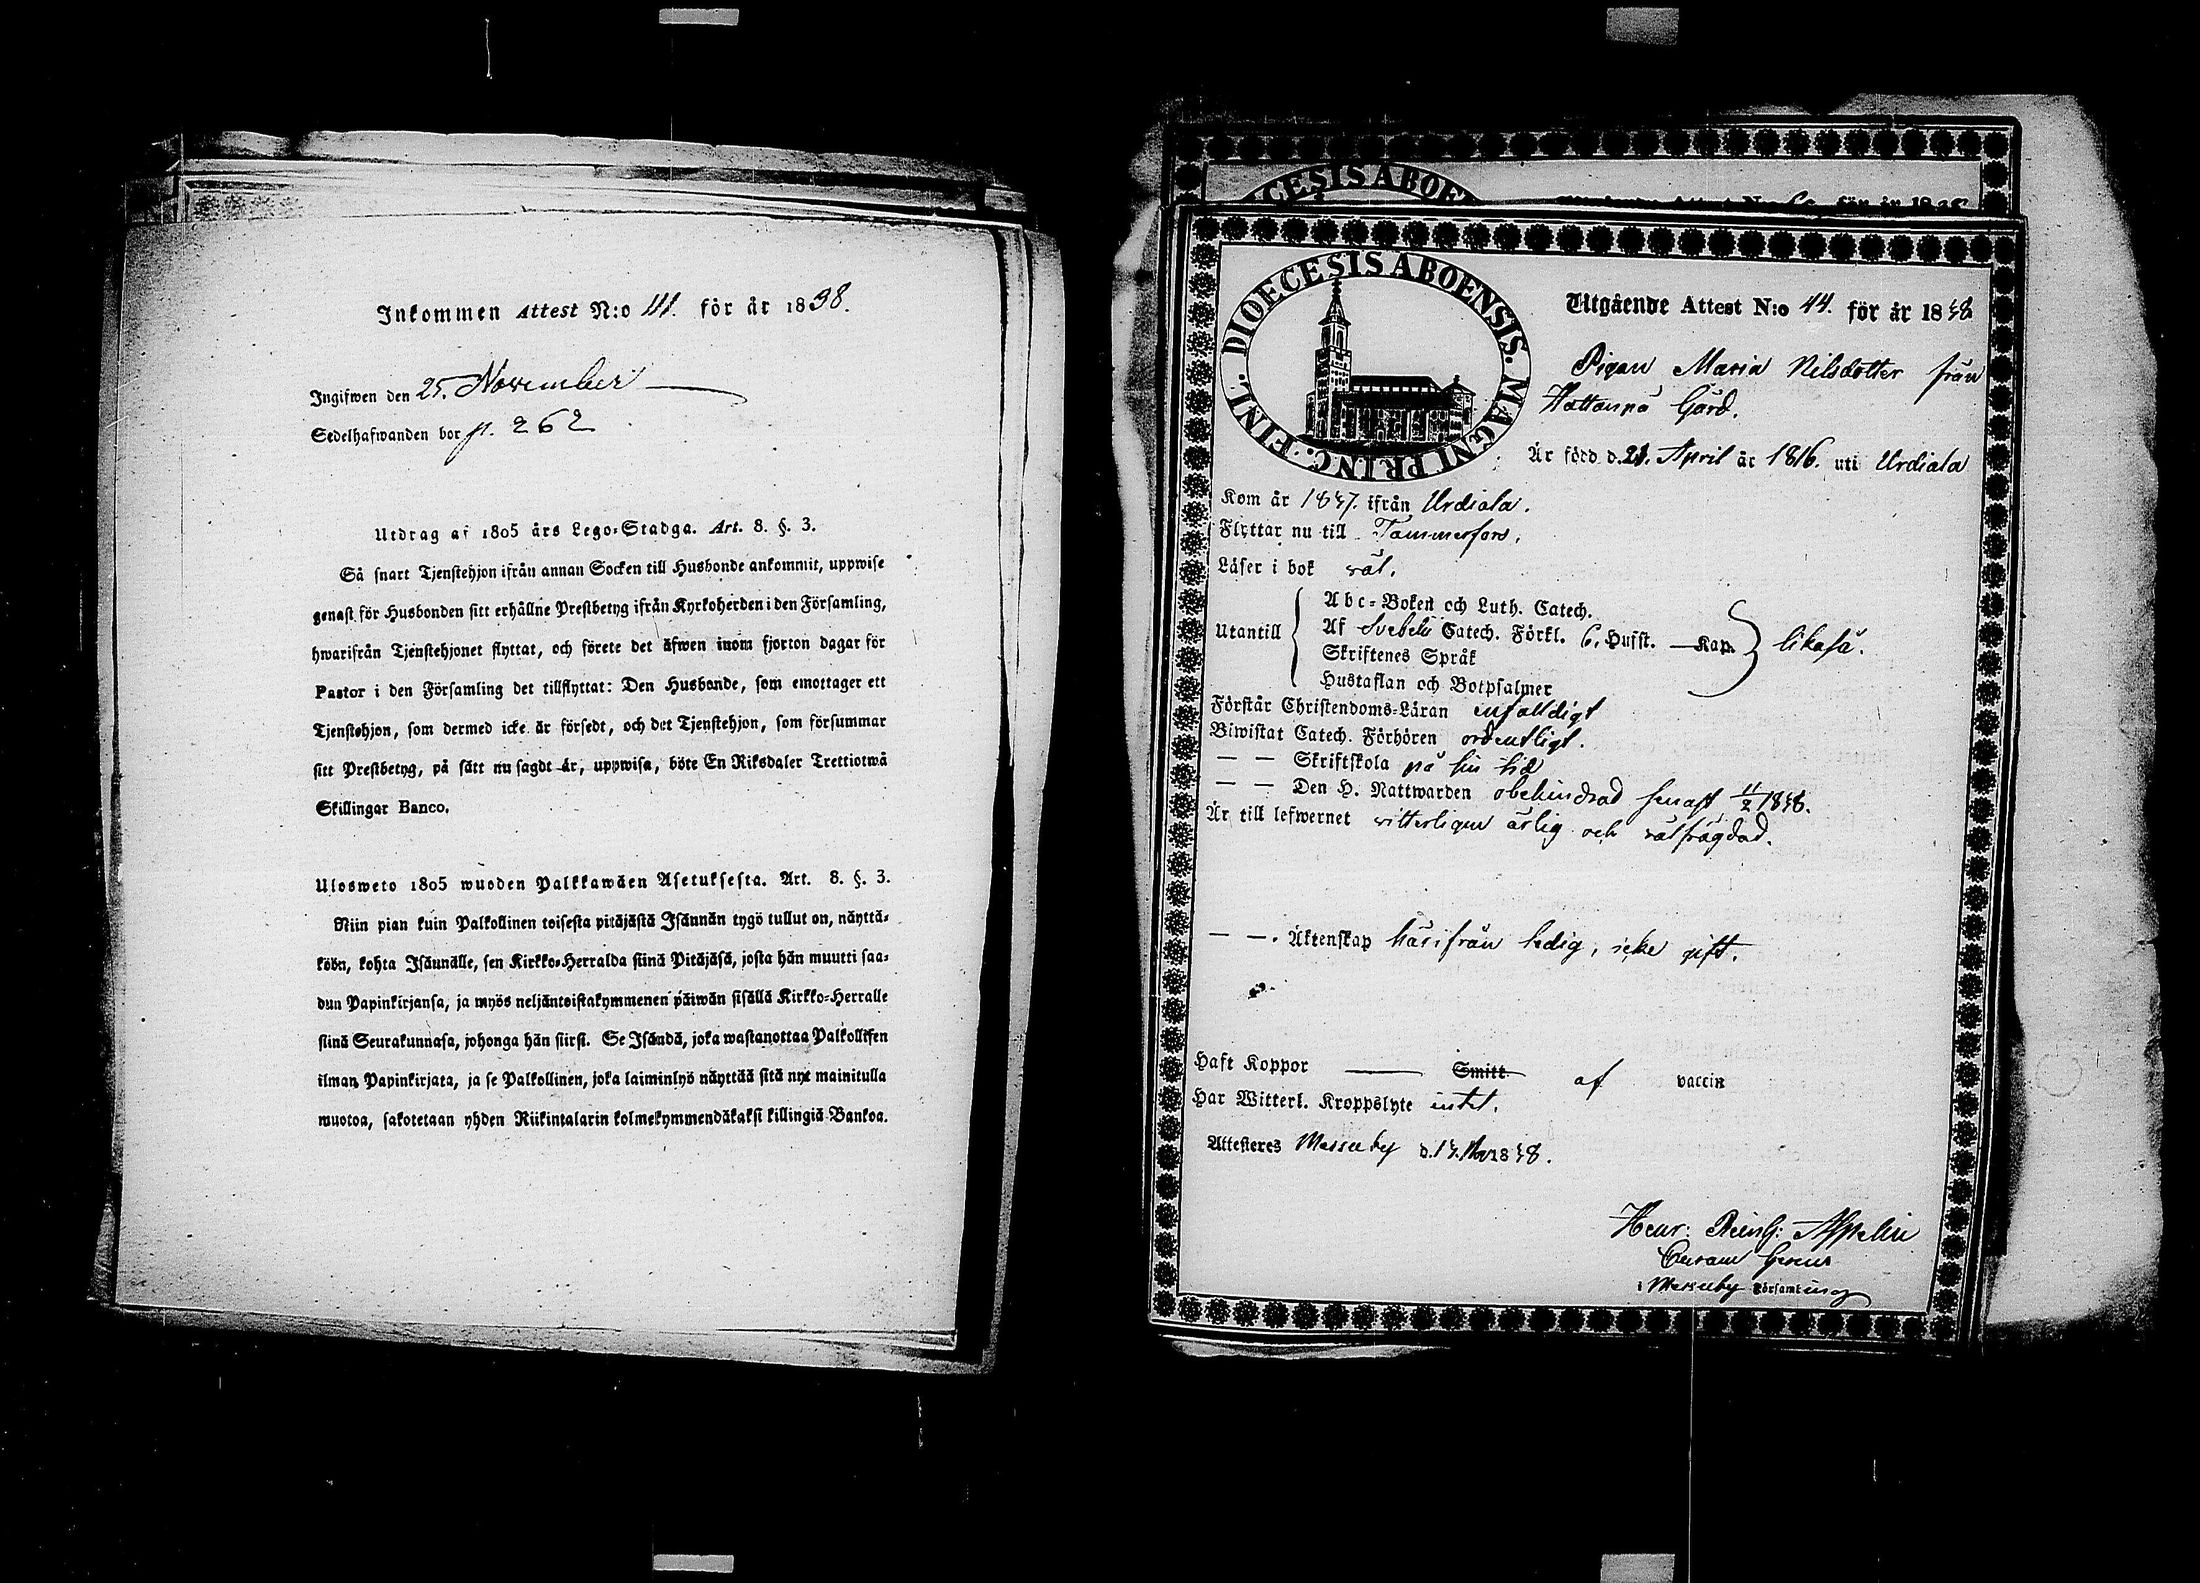 Inkommen Attest N:o 111. för år 1838.
Ingifwen den 25. November
Sedelhafwanden bor p. 262
Utdrag af 1805 års Lego-Stadga. Art. 8. §. 3.
Så snart Tjenstehjon ifrån annan Socken till Husbonde ankommit, uppwise
genast för Husbonden sitt erhållne Prestbetyg ifrån Kyrkoherden i den Församling,
hwarifrån Tjenstehjonet flyttat, och förete det äfwen inom fjorton dagar för
Pastor i den Församling det tillflyttat: Den Husbonde, som emottager ett
Tjenstehjon, som dermed icke är försedt, och det Tjenstehjon, som försummar
sitt Prestbetyg, på sätt nu sagdt är, uppwisa, böte En Riksdaler Trettiotwå
Skillingar Banco.
Ulosweto 1805 wuoden Palkkawäen Asetuksesta. Art. 8. §. 3.
Niin pian kuin Palkollinen toisesta pitäjästä Isännän tygö tullut on, näyttä-
köön, kohta Isännälle, sen Kirkko-Herralda siinä Pitäjäsä, josta hän muutti saa-
dun Papinkirjansa, ja myös neljäntoistakymmenen päiwän sisällä Kirkko-Herralle
siinä Seurakunnasa, johonga hän siirsi. Se Isändä, joka wastanottaa Palkollisen
ilman Papinkirjata, ja se Palkollinen, joka laiminlyö näyttää sitä nyt mainitulla
muotoa, sakotetaan yhden Riikintalarin kolmekymmendäkaksi killingiä Bankoa.
CESIS ABOE
DIOECESIS ABOENSIS. MAGNI PRINC. FINL.
Utgående Attest N:o 44. för år 1838
Pigan Maria Nilsdotter från
Hattanpä Gård.
Är född d. 21. April år 1816. uti Urdiala
Kom år 1837. ifrån Urdiala.
Flyttar nu till Tammerfors.
Läser i bok väl.
Utantill
Abc-Boken och Luth. Catech.
Af Svebelii Catech. Förkl. 6. Hufst. — Kap. likaså.
Skriftenes Språk
Hustaflan och Botpsalmer
Förstår Christendoms-Läran enfalldigt
Biwistat Catech. Förhören ordentligt.
— — Skriftskola på sin tid
— — Den H. Nattwarden obehindrad senast 11/2 1838.
Är till lefwernet vitterligen ärlig och välfrägdad.
— —. Äktenskap härifrån ledig, icke gift.
Haft Koppor — Smitt af vaccin
Har Witterl. Kroppslyte intet.
Attesteres Messuby d. 13. Nov 1838.
Henr: Reinh: Appelin
Curam Gerens
i Messuby Församling